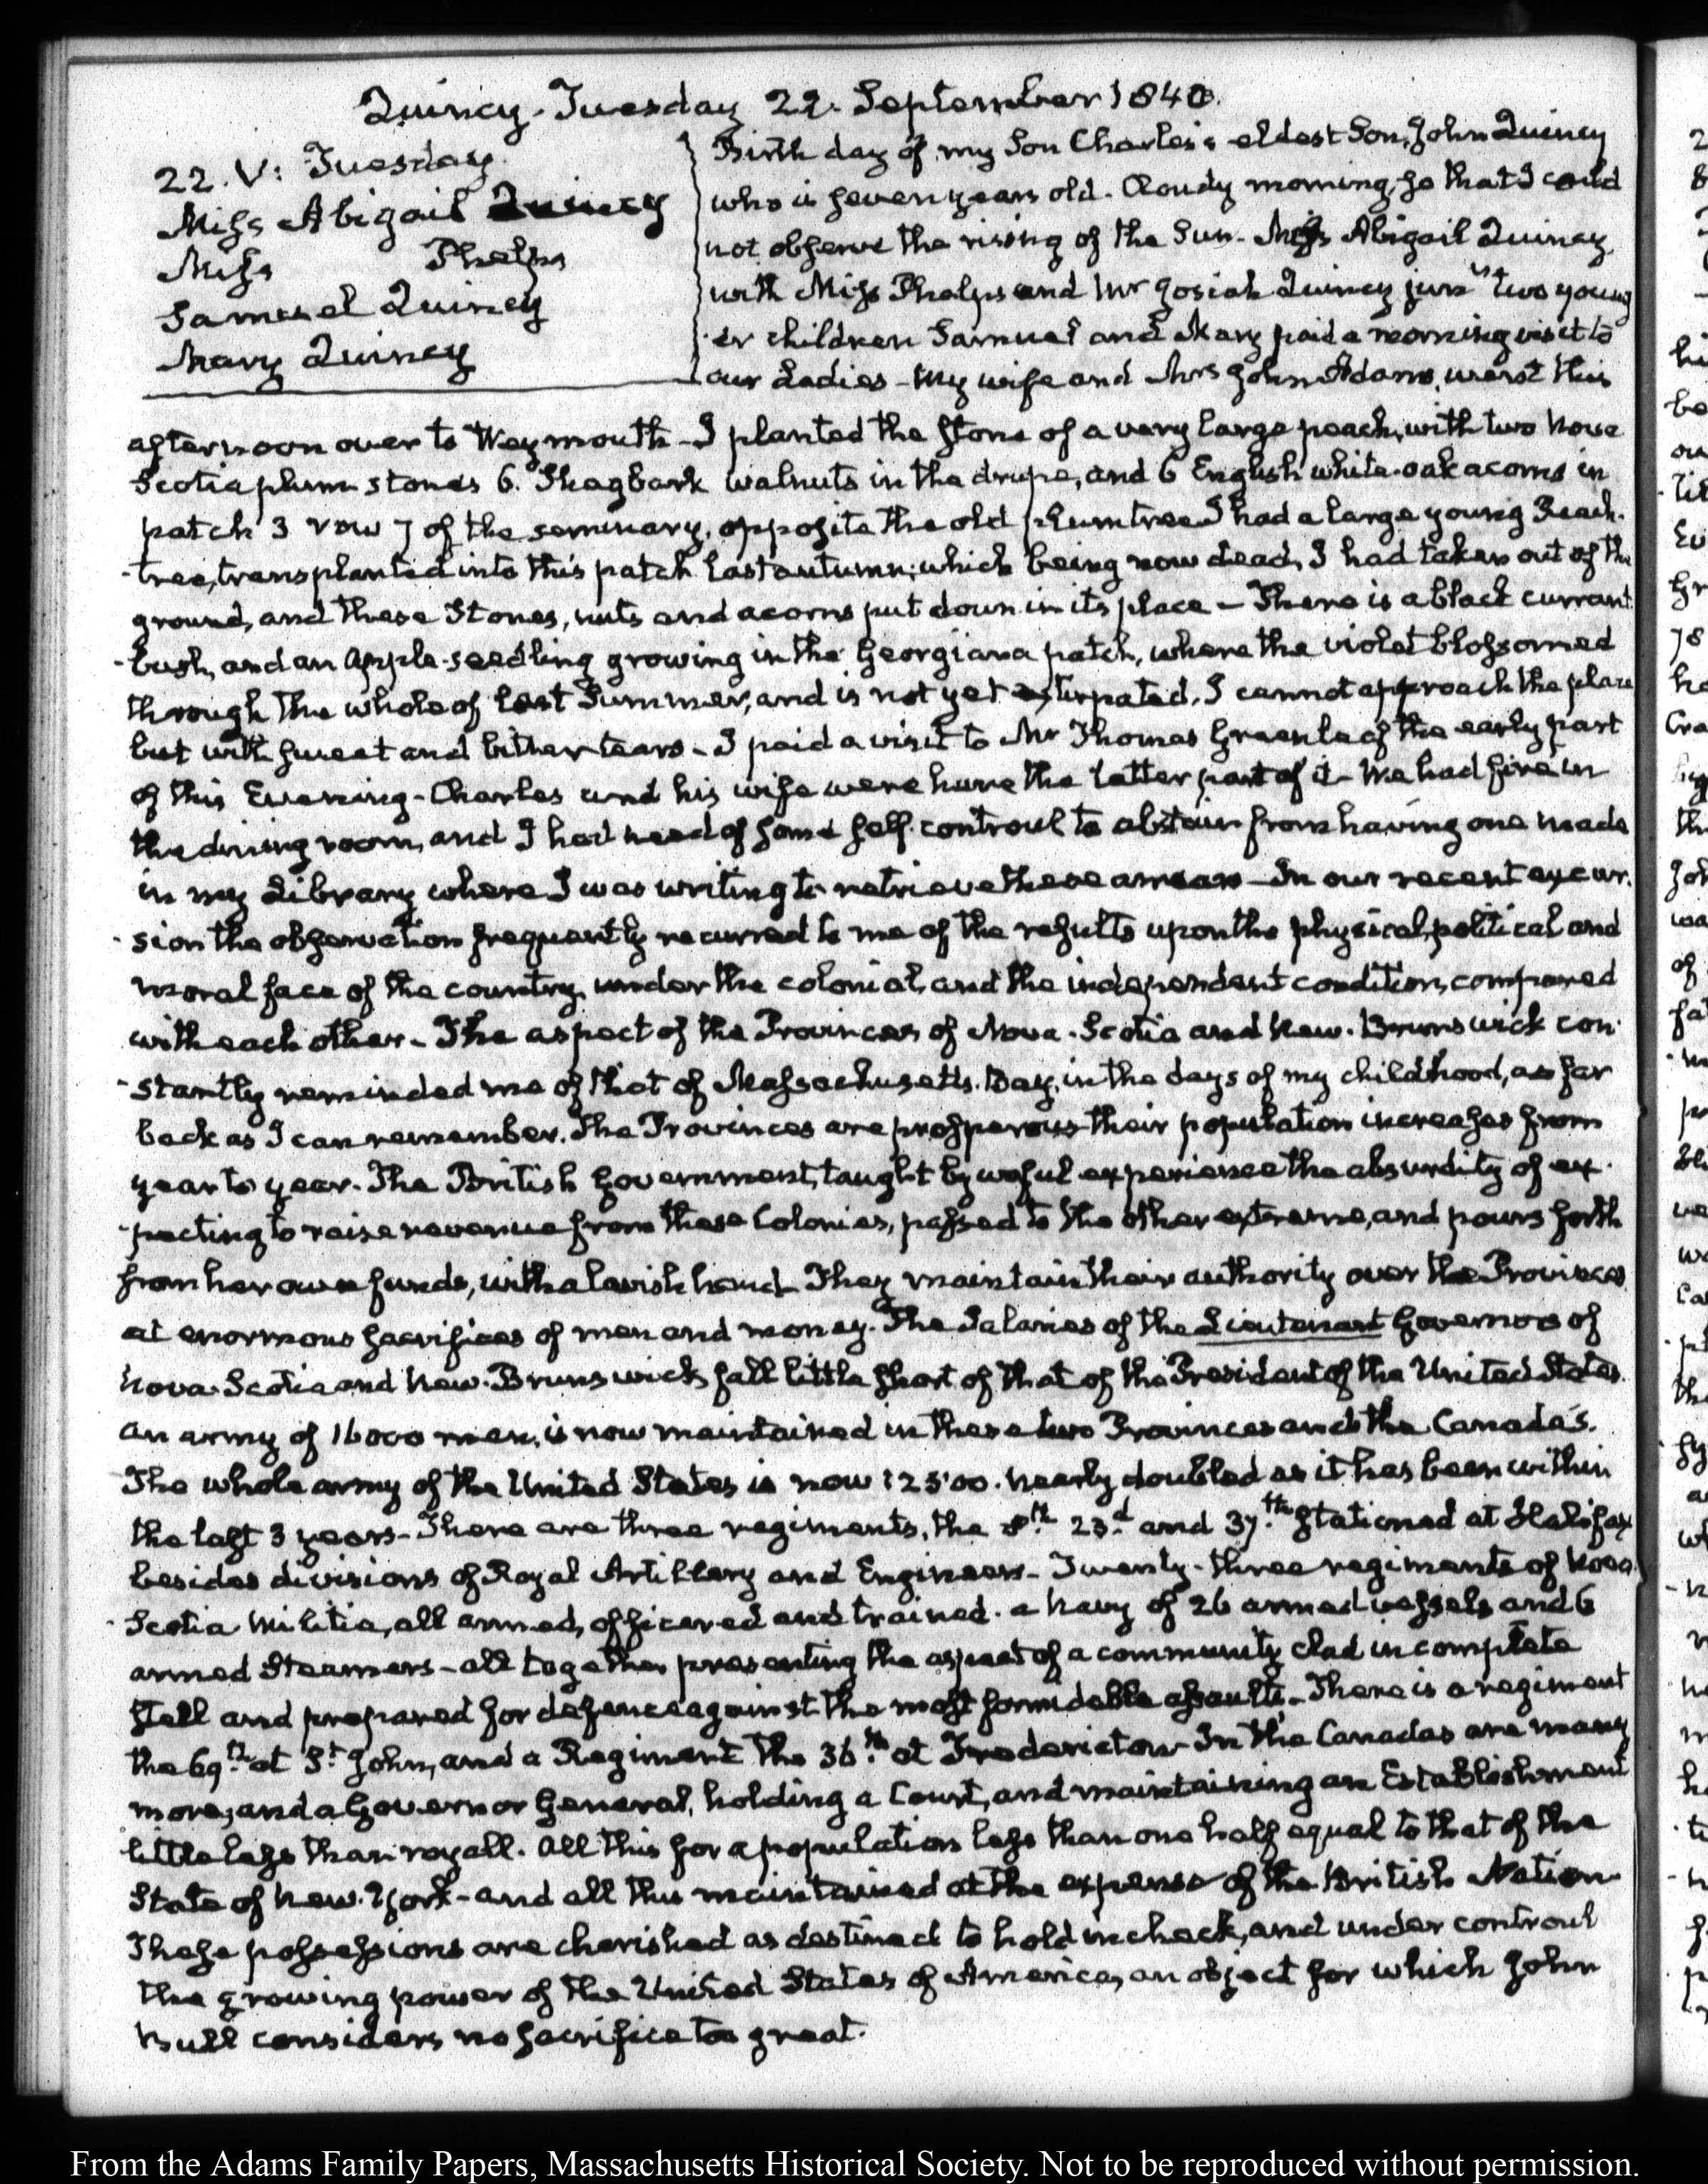 Quincy. Tuesday 22. September 1840.
22. V: Tuesday.
Miss Abigail Quincy
Miss Phelps
Samuel Quincy
Mary Quincy
Birth day of my Son Charles's eldest Son, John Quincy
who is seven years old. Cloudy morning, so that I could
not observe the rising of the Sun. Miss Abigail Quincy
with Miss Phelps and Mr Josiah Quincy junr's two young
-er children Samuel and Mary paid a morning visit to
our Ladies - My wife and Mrs John Adams, went this
afternoon over to Weymouth - I planted the stone of a very large peach, with two Nova
Scotia plum stones 6. Shagbark walnuts in the drupe, and 6 English white-oak acorns in
patch 3 row 7 of the seminary, opposite the old plumtree I had a large young Peach-
-tree, transplanted into this patch last autumn; which being now dead, I had taken out of the
ground, and these Stones, nuts and acorns put down in its place - There is a black currant
-bush, and an apple-seedling growing in the Georgiana patch, where the violet blossomed
through the whole of last Summer, and is not yet extirpated. I cannot approach the place
but with sweet and bitter tears - I paid a visit to Mr Thomas Greenleaf the early part
of this Evening - Charles and his wife were here the latter part of it - We had fire in
the dining room, and I had need of some self-controul to abstain from having one made
in my Library where I was writing to retrieve these arrears - In our recent excur-
-sion the observation frequently recurred to me of the results upon the physical, political and
moral face of the country, under the colonial, and the independent condition, compared
with each other - The aspect of the Provinces of Nova-Scotia and New-Brunswick con-
-stantly reminded me of that of Massachusetts-Bay, in the days of my childhood, as far
back as I can remember. The Provinces are prosperous their population increases from
year to year. The British Government, taught by woful experience the absurdity of ex-
-pecting to raise revenue from these Colonies, passed to the other extreme, and pours forth
from her own funds, with a lavish hand. They maintain their authority over the Provinces
at enormous sacrifices of men and money. The Salaries of the Lieutenant Governors of
Nova-Scotia and New-Brunswick, fall little short of that of the President of the United States.
an army of 16000 men, is now maintained in these two Provinces and the Canada's.
The whole army of the United States is now 12500. nearly doubled as it has been within
the last 3 years - There are three regiments, the 8th 23d and 37th stationed at Halifax
besides divisions of Royal Artillery and Engineers - Twenty-three regiments of Nova
-Scotia Militia, all armed, officered and trained. a Navy of 26 armed vessels and 6
armed Steamers - all together presenting the aspect of a community clad in complete
stell and prepared for defence against the most formidable assaults - There is a regiment
the 69th at St John, and a Regiment the 36th at Fredericton - In the Canadas are many
more, and a Governor General, holding a Court, and maintaining an Establishment
little less than royall. All this for a population less than one half equal to that of the
State of New-York - and all this maintained at the expense of the British Nation
These possessions are cherished as destined to hold in check, and under controul
the growing power of the United States of America, an object for which John
Bull considers no sacrifice too great.
From the Adams Family Papers, Massachusetts Historical Society. Not to be reproduced without permission.